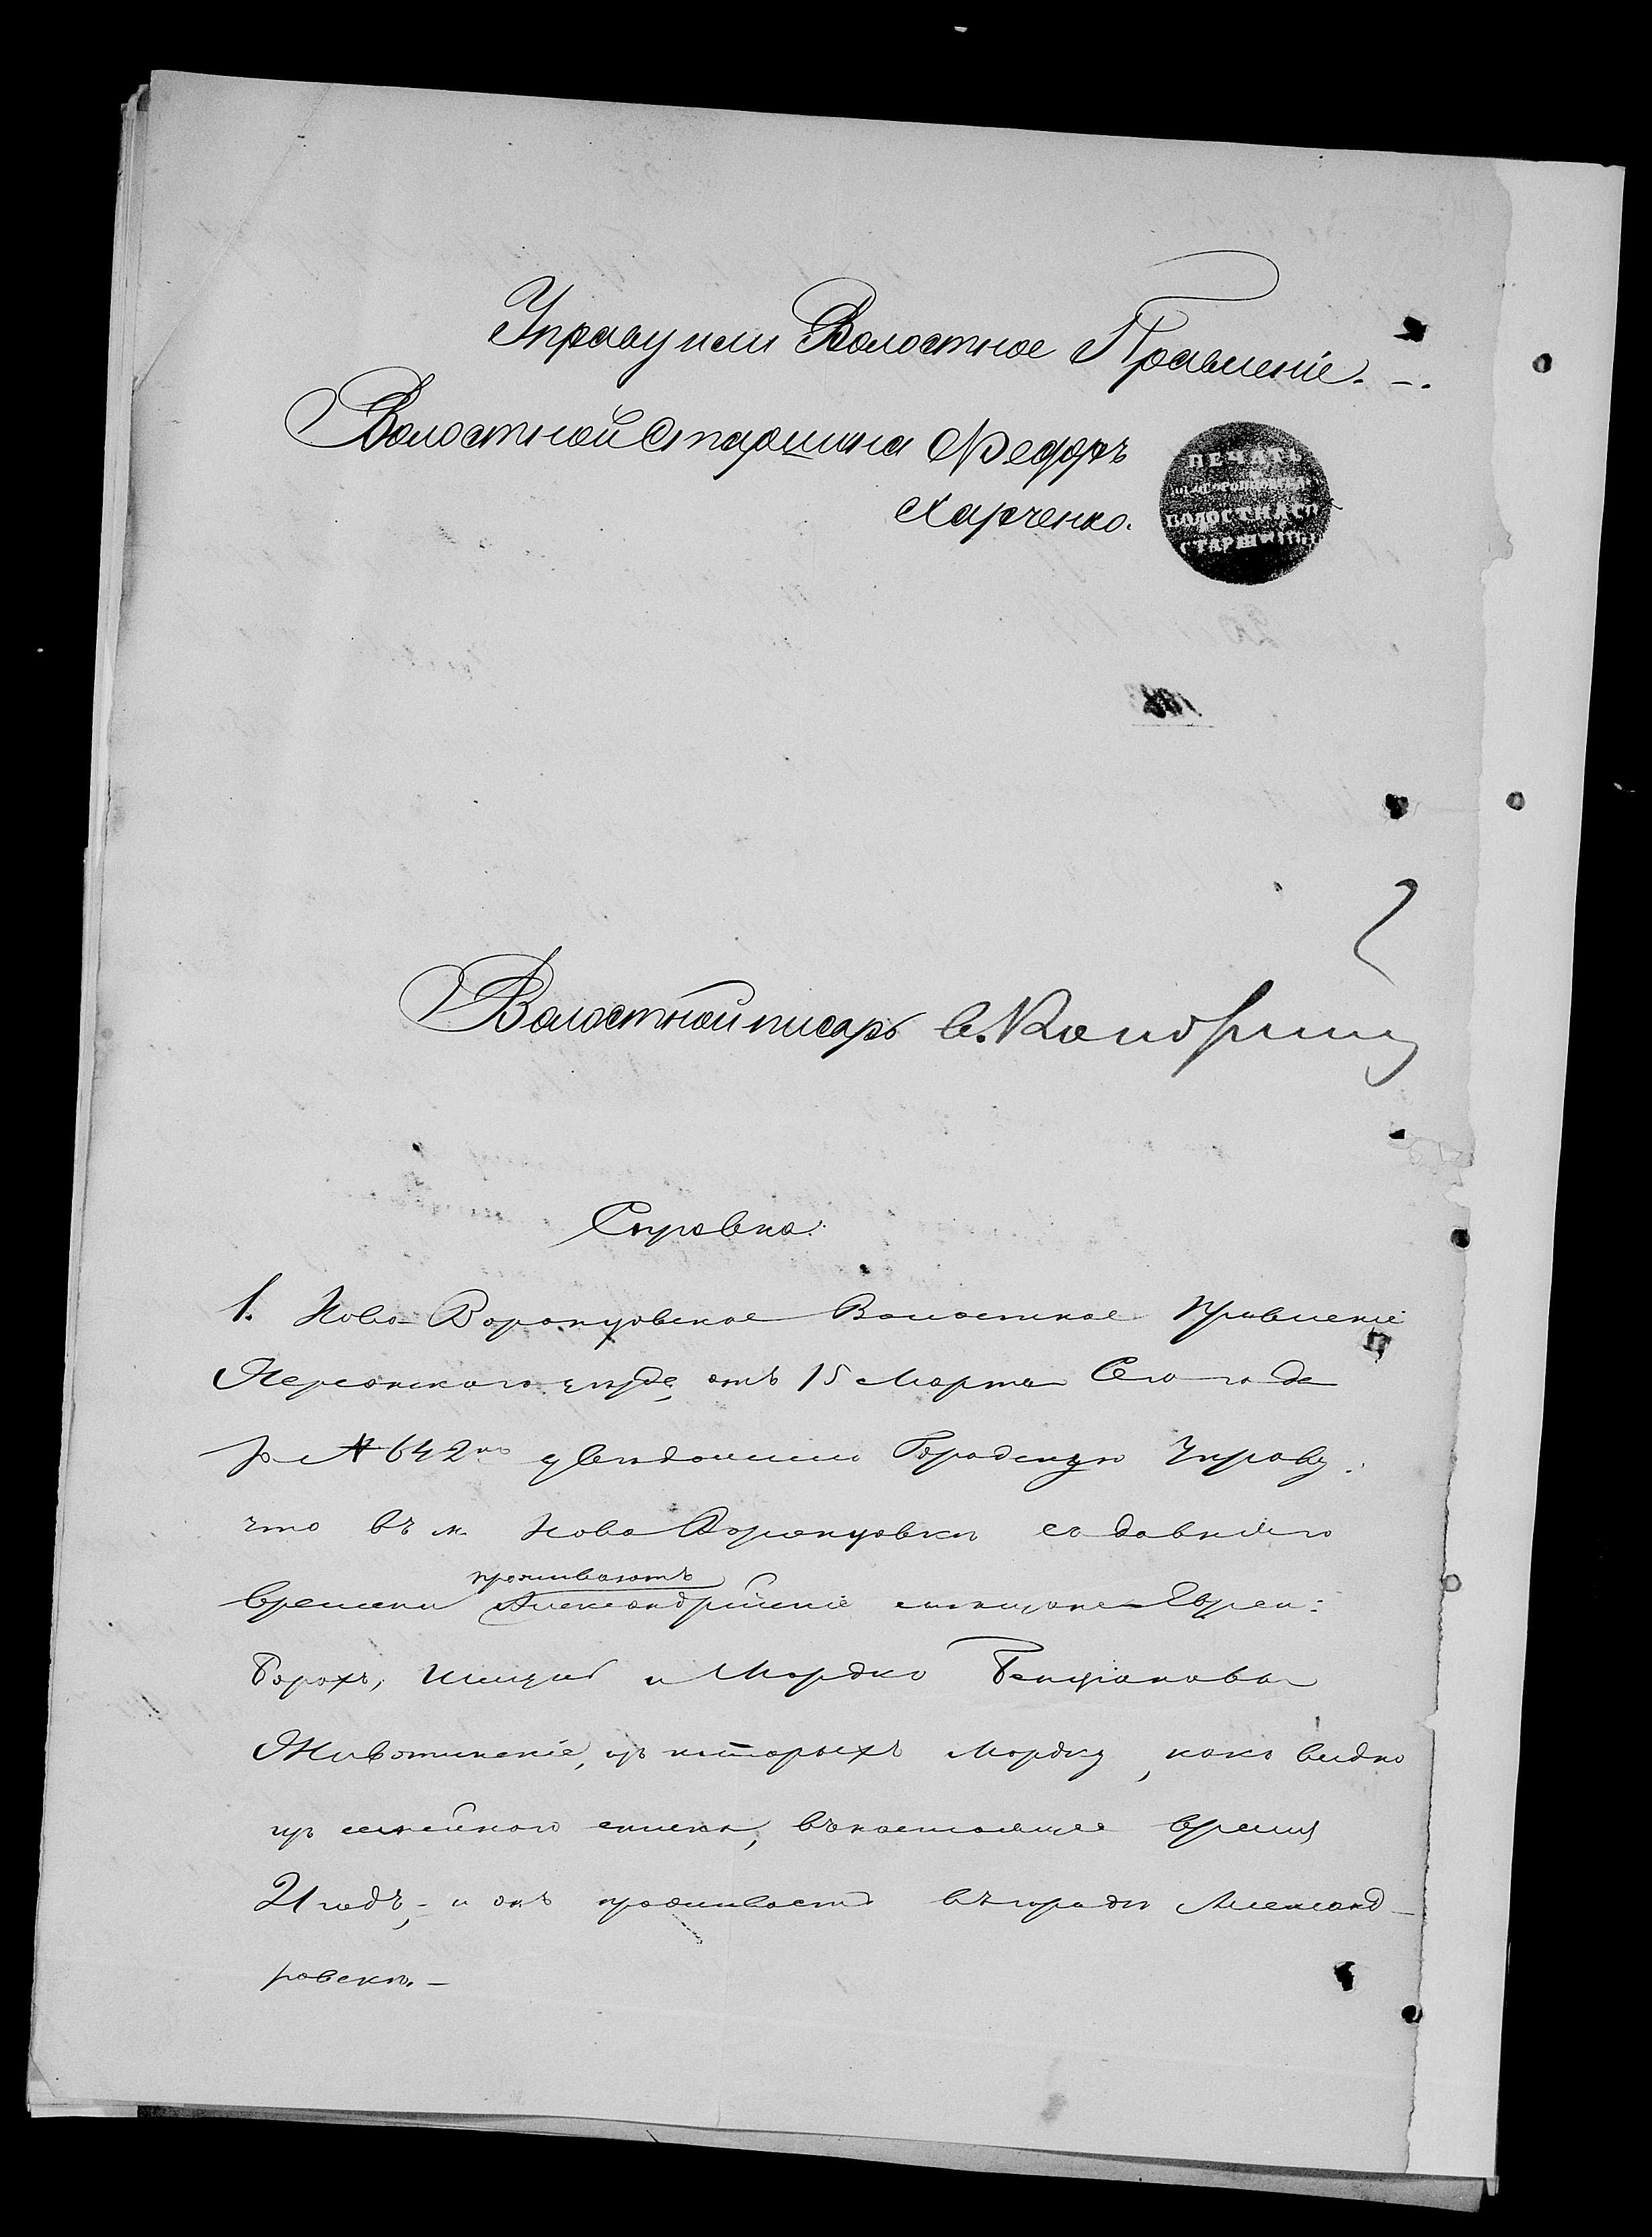 Управу или Волостное Правленіе. –.
Волостной Старшина Федоръ
Харченко.
ПЕЧАТЬ
ВОЛОСТНАГО
СТАРШИНЫ
Волостной писарь
Справка:
1. Ново-Воронцовское Волостное Правленіе
Херсонскаго уѣзда, отъ 15 Марта сего года
за № 642мъ увѣдомило Городскую Управу:
что въ м. Ново Воронцовкѣ съ давняго
проживаютъ
времени Александрійскіе мѣщане Евреи:
Борохъ, Ицко и Мордко Бенціоновы
Животинскіе, изъ которыхъ Мордку, какъ видно
изъ семейнаго списка, въ настоящее время
21 годъ, – и онъ проживаетъ въ городѣ Александ–
ровскѣ. –